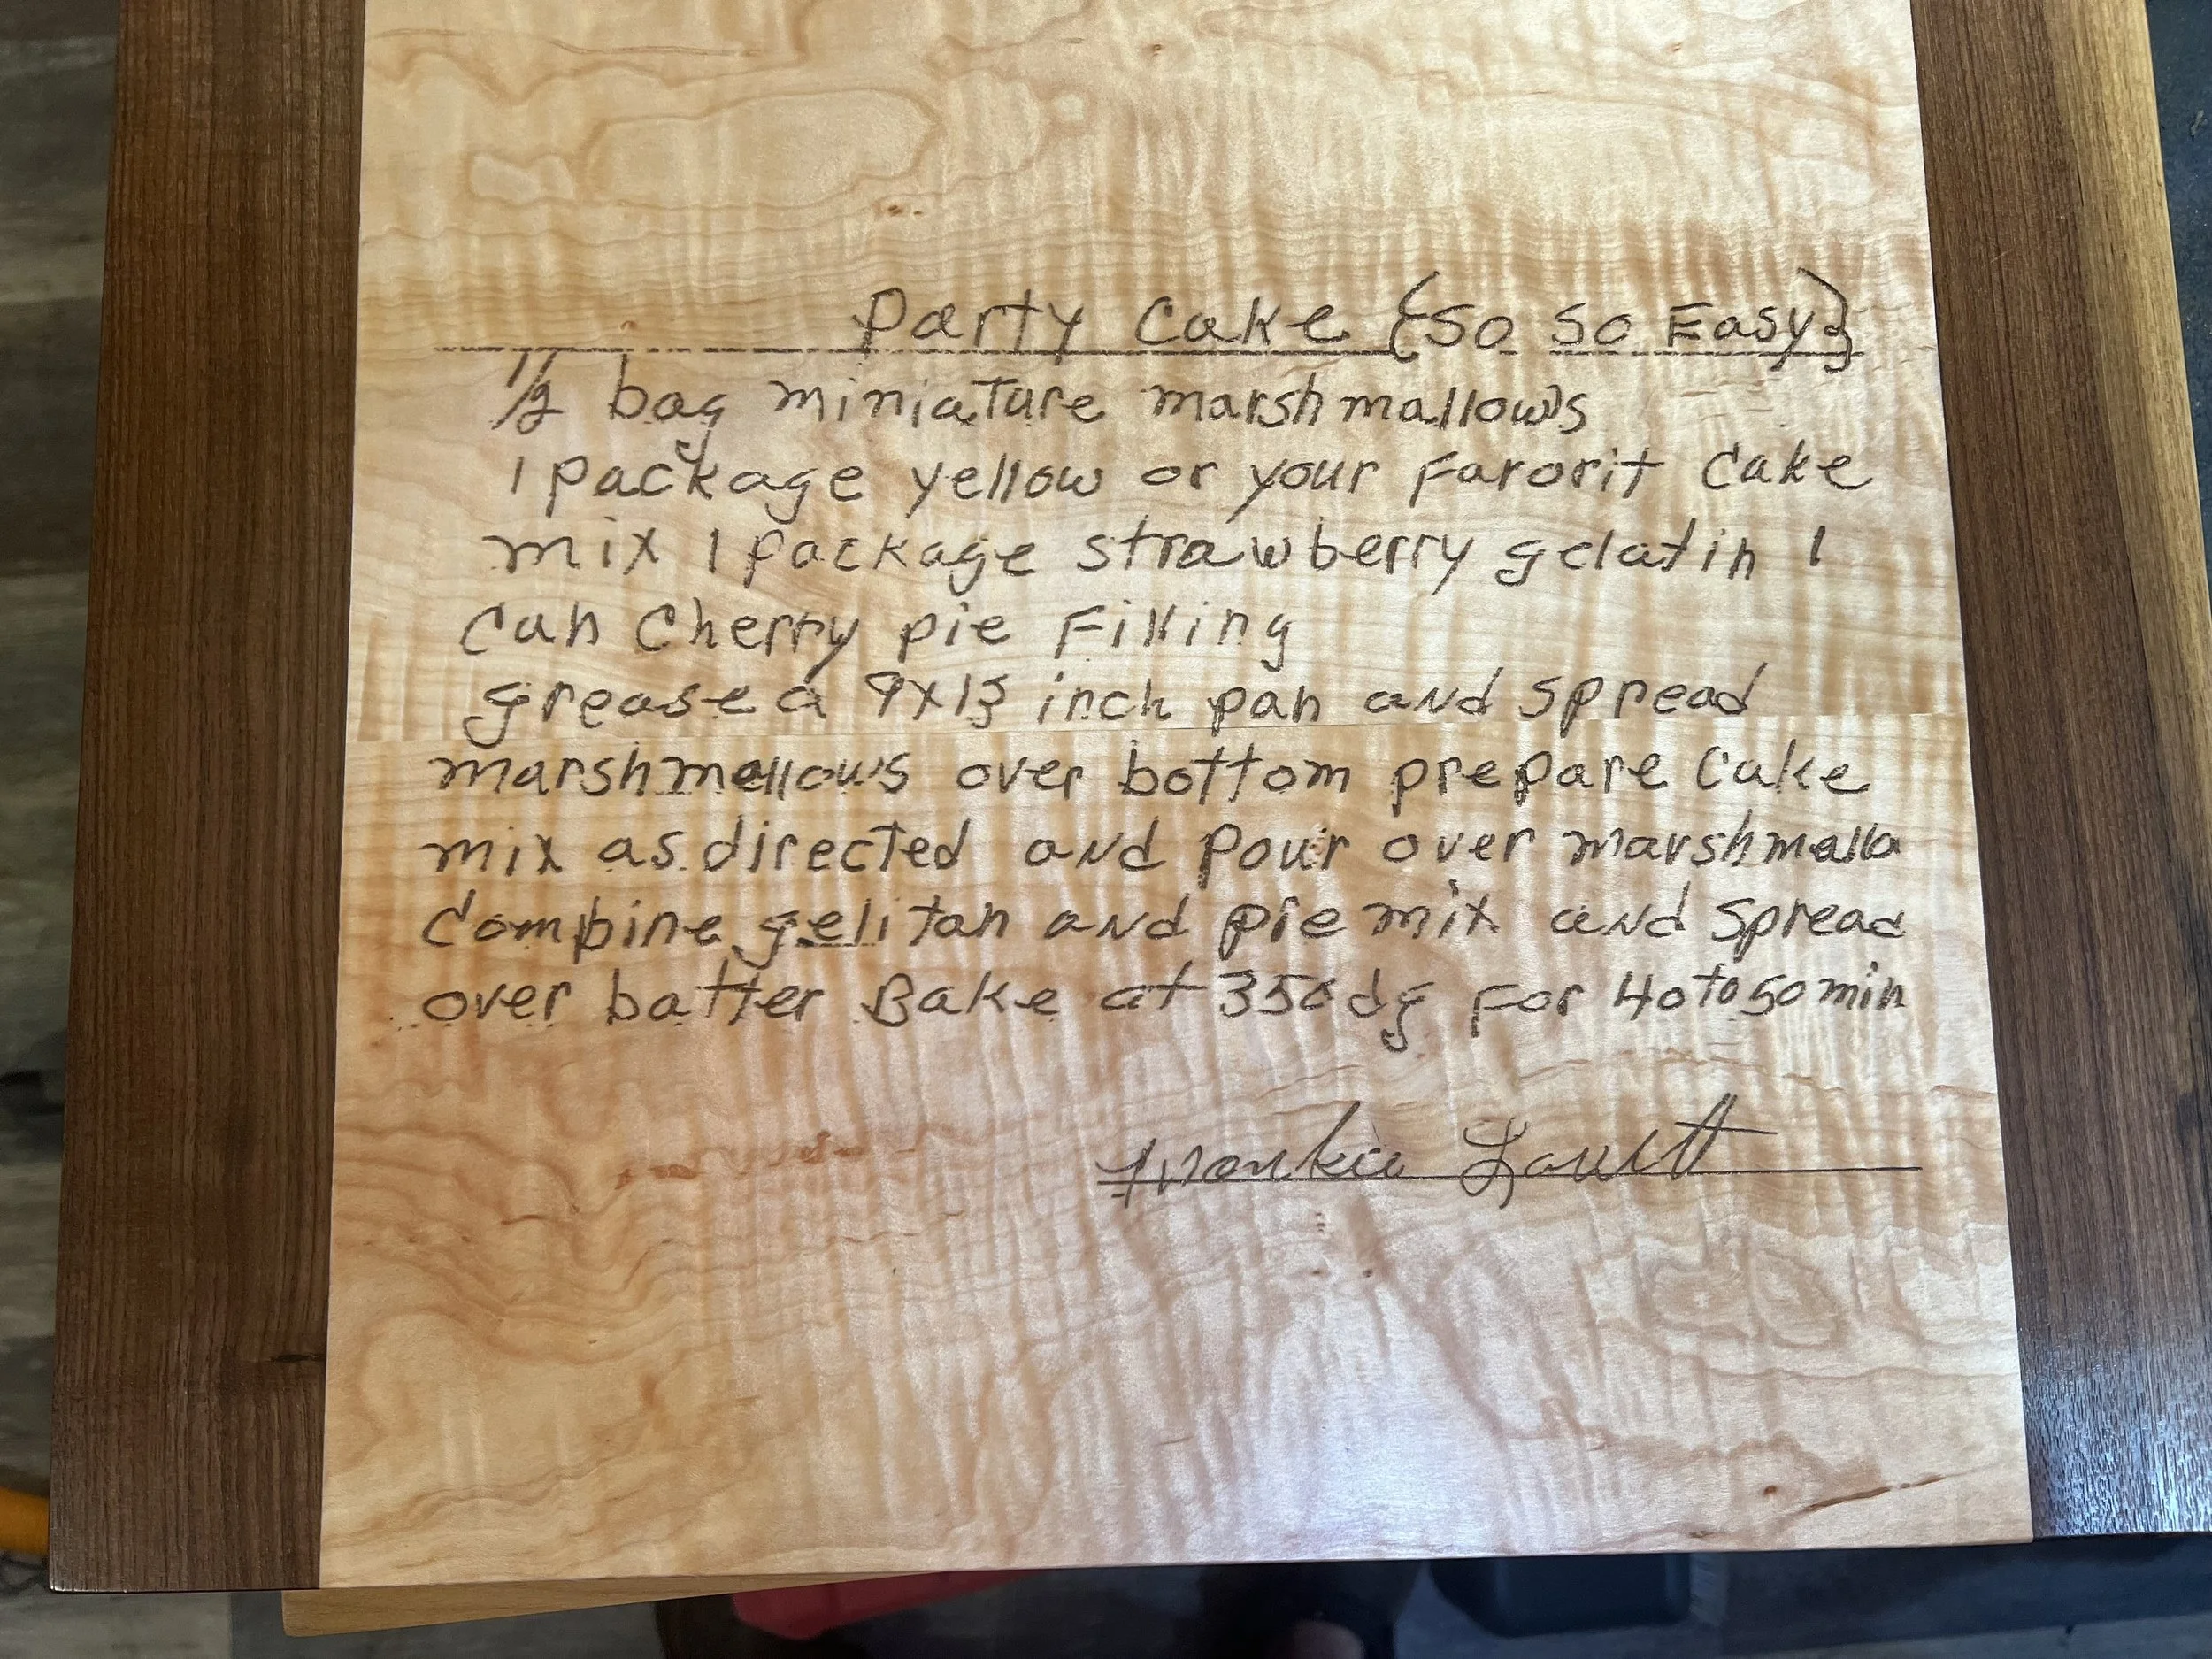 Party Cake {So So Easy}
1/2 bag miniature marshmallows
1 package yellow or your Favorit Cake
mix 1 package strawberry gelatin 1
Can Cherry pie Filling
grease a 9x13 inch pan and spread
marshmallows over bottom prepare Cake
mix as directed and Pour over marshmallo
Combine gelitan and pie mix and Spread
over batter Bake at 350 dg For 40 to 50 min
Frankie Lovett